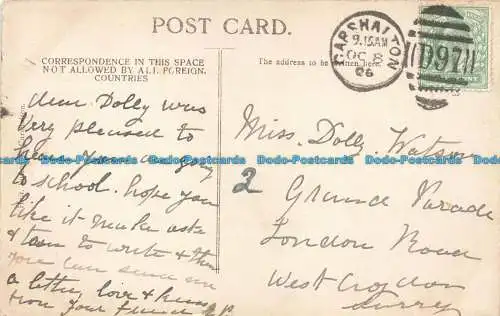 POST CARD.
CORRESPONDENCE IN THIS SPACE
NOT ALLOWED BY ALL FOREIGN
COUNTRIES
The address to be written here.
CARSHALTON
9.15AM
OC 8
06
D97
dear Dolly was
very pleased to
hear your are going
to school. hope you
like it make aste
& learn to write & then
you can send me
a letter, love & kisses
from your friend
Miss. Dolly. Watson
2 Grand Parade
London Road
West Croydon
Surrey
Dodo-Postcards Dodo-Postcards Dodo-Postcards Dodo-Postcards